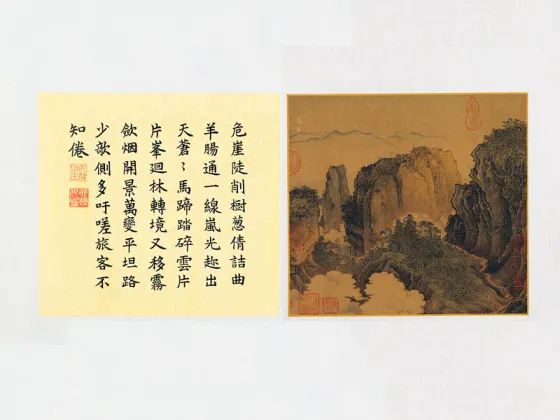 危崖陡削樹蔥倩詰曲
羊腸通一線嵐光趂出
天蒼〻馬蹄踏碎雲片
片峯迴林轉境又移霧
歛烟開景萬變平坦路
少欹側多吁嗟旅客不
知倦